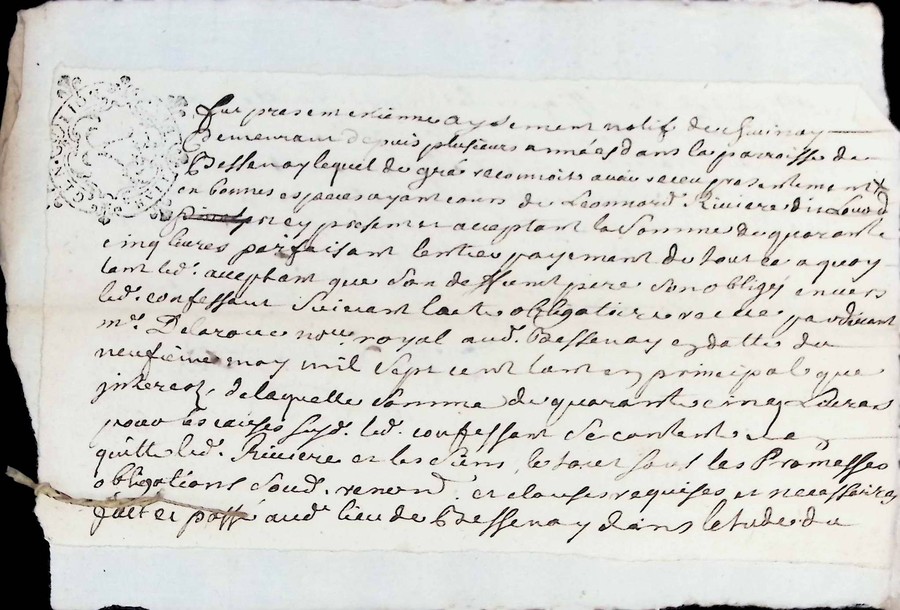 fut present etienne aysement natif de
demeurant depuis plusieurs années dans la parroisse de
Bessenay lequel de gré reconnoit avoir receu presentement
en bonnes especes ayant cours de Leonnard Riviere dit
present icy present et acceptant la somme de quarante
cinq livres parfaisant lentier payement de tout ce a quoy
tant led. acceptant que son deffunt pere sont obligéz envers
led. confessant suivant lacte obligatoire receue pardevant
me. Delaroue nore. royal aud. Bessenay en datte du
neufieme may mil sept cent tant en principal que
interestz, de laquelle somme de quarante cinq Livres
pour les causes susd. led. confessant se contente et en
quitte led. Riviere et les siens, le tout sous les Promesses
obligations soud. renond. et clauses requises et necessaires
fait et passé aud. lieu de Bessenay dans letude du